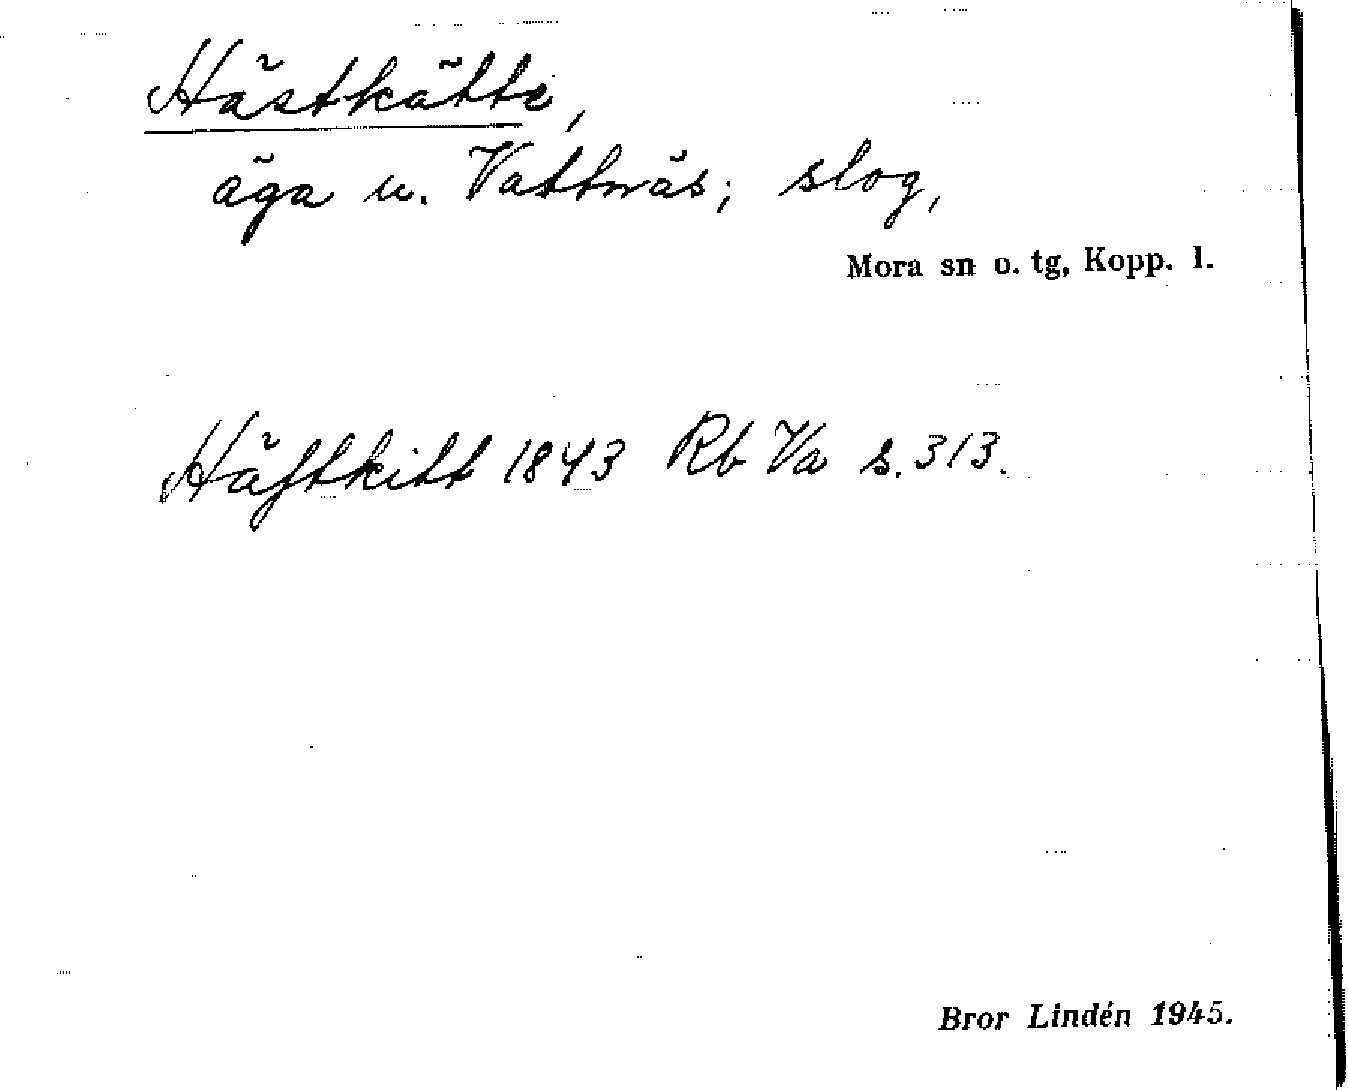 Hästkätte,
äga u. Vattnäs; slog,
Mora sn o. tg, Kopp. l.
Häſtkitt 1843 Rb Va s. 313.
Bror Lindén 1945.